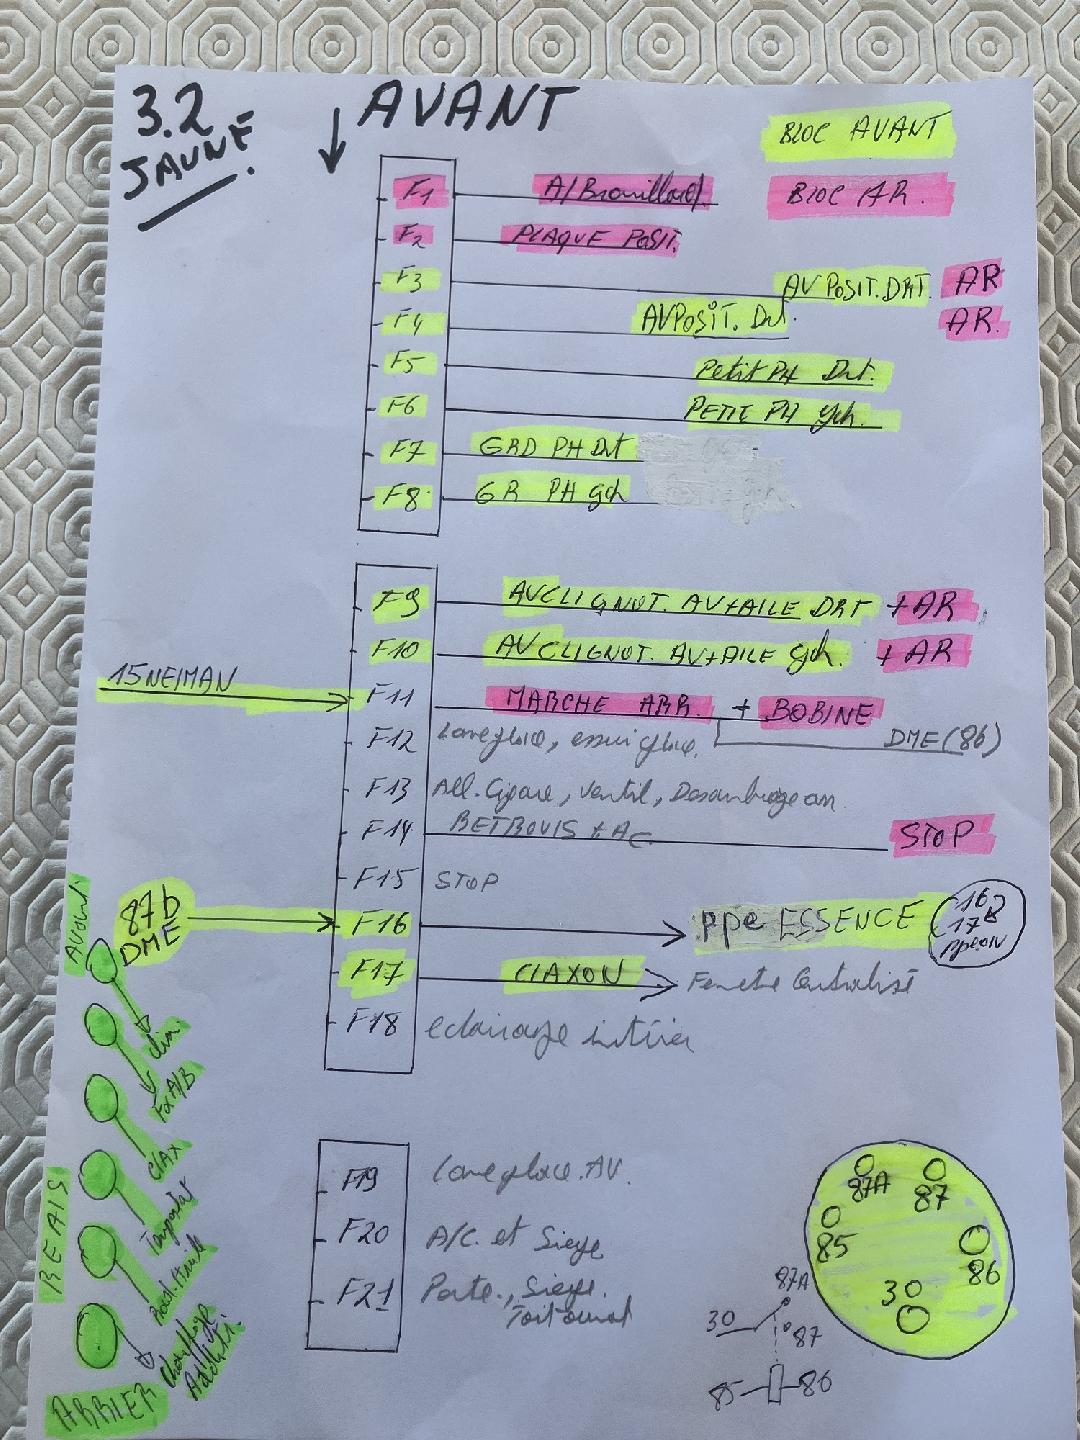 3.2
JAUNE
AVANT
BLOC AVANT
F1 A/Brouillard BLOC AR.
F2 PLAQUE POSIT.
F3 AV POSIT. DRT. AR
F4 AV POSIT. Drt. AR.
F5 Petit PH Drt.
F6 PETIT PH gch.
F7 GRD PH Drt
F8 GR PH gch
F9 AV CLIGNOT. AV+AILE DRT + AR
F10 AV CLIGNOT. AV+AILE gch. + AR
15 NEIMAN F11 MARCHE ARR. + BOBINE
F12 Lave glace, essui glace. DME (86)
F13 All. Cigare, Ventil,
F14 + AC STOP
F15 STOP
87b DME F16 ppe ESSENCE
F17 CLAXON Fenetre Centralisé
F18 eclairage
F19 Lave glace. AV.
F20 A/C. et Siege
F21 Porte., Siege.
Avant
clim
A/B
CLAX
RELAIS
Chauffage
ARRIER
87A 87
85 86
30
87A
30 87
85 86